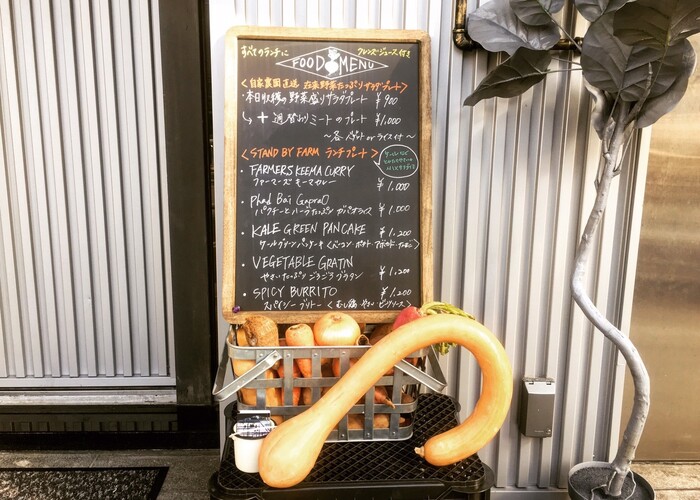 すべてのランチに クレンズジュース付き
FOOD MENU
〈自家農園直送 在来野菜たっぷりサラダプレート〉
・本日収穫の野菜盛りサラダプレート ¥900
↳ + 週替わりミートのプレート ¥1,000
〜各・バゲット or ライス付〜
〈STAND BY FARM ランチプレート〉
・FARMERS KEEMA CURRY
ファーマーズ キーマカレー ¥1,000
・Phad Bai GapraO
パクチーとハーブたっぷり ガパオライス ¥1,000
・KALE GREEN PANCAKE ¥1,200
ケールグリーンパンケーキ〈ベーコン・ポテト・アボカド・たまご〉
・VEGETABLE GRATIN
やさいたっぷり ごろごろグラタン ¥1,200
・SPICY BURRITO ¥1,200
スパイシーブリトー〈むし鶏・やさい・ビーンズソース〉